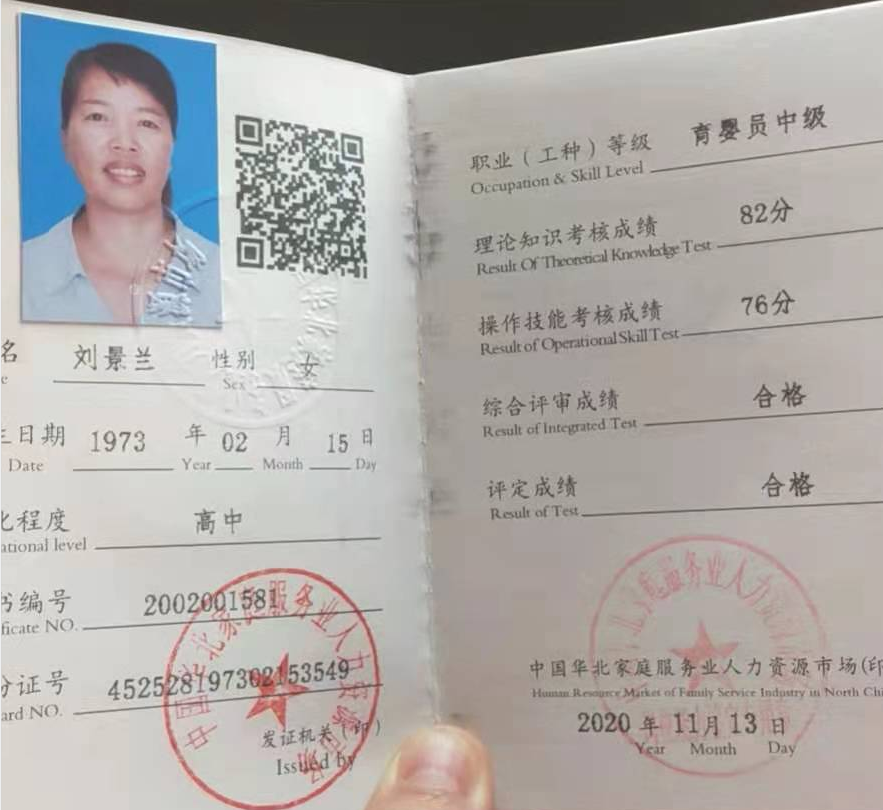 名 刘景兰 性别 女
Sex
生日期 1973 年 02 月 15 日
Date Year Month Day
化程度 高中
ational level
书编号 2002001581
ficate NO.
份证号 452528197302153549
ard NO.
发证机关(印)
Issued by
中国华北家庭服务业人力资源市场
职业(工种)等级 育婴员中级
Occupation & Skill Level
理论知识考核成绩 82分
Result Of Theoretical Knowledge Test
操作技能考核成绩 76分
Result of Operational Skill Test
综合评审成绩 合格
Result of Integrated Test
评定成绩 合格
Result of Test
中国华北家庭服务业人力资源市场(印
Human Resource Market of Family Service Industry in North Chi
2020 年 11 月 13 日
Year Month Day